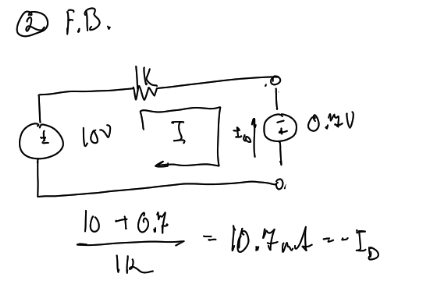 ② F.B.
1K
10V I I_D 0.7V
10 + 0.7
1K
= 10.7mA = -I_D